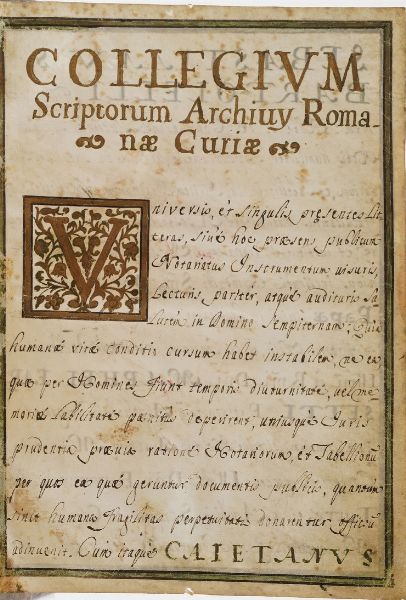 COLLEGIVM
Scriptorum Archivy Roma-
næ Curiæ
Vniversis, et singulis præsentes Lit-
teras, sive hoc præsens publicum
Notariatus Instrumentum visuris,
Lecturis pariter, atque audituris Sa-
lutem in Domino sempiternam. Quia
humanæ vitæ conditio cursum habet instabilem, ne ea
quæ per Homines fiunt temporis diuturnitate, vel me
moriæ labilitate pænitus deperirent, utriusque Iuris
prudentia prævia ratione Notariorum, et Tabellionũ
per quos ea quæ geruntur documentis publicis, quantum
sinit humana fragilitas perpetuitate donarentur officiũ
adinvenit. Cum itaque CAIETANVS